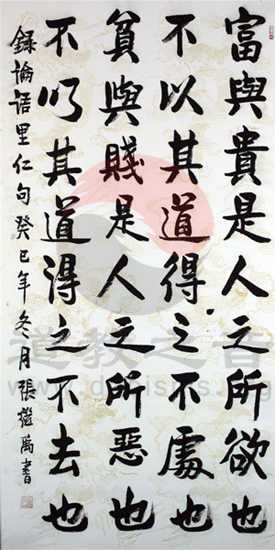 富與貴是人之所欲也
不以其道得之不處也
貧與賤是人之所惡也
不以其道得之不去也
錄論語里仁句癸巳年冬月張繼禹書
道教之音